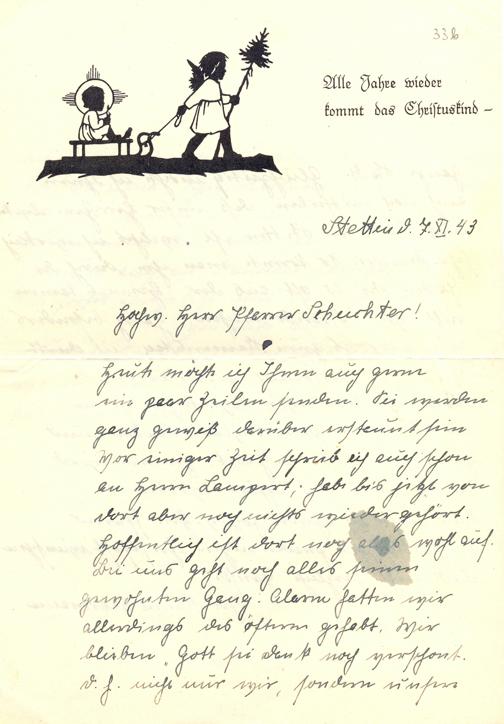 33b
Alle Jahre wieder
kommt das Christuskind –
Stettin d. 7. XI. 43
Hochw. Herr Pfarrer Schuchter!
Heute möcht ich Ihnen auch gerne
ein paar Zeilen senden. Sie werden
ganz gewiß darüber erstaunt sein
Vor einiger Zeit schrieb ich auch schon
an Herrn Lampert, habe bis jetzt von
dort aber noch nichts wiedergehört.
Hoffentlich ist dort noch alles wohl auf.
Bei uns geht noch alles seinen
gewohnten Gang. Alarm hatten wir
allerdings des öftern gehabt. Wir
blieben, Gott sei dank noch verschont.
d. h. nicht nur wir, sondern unsere